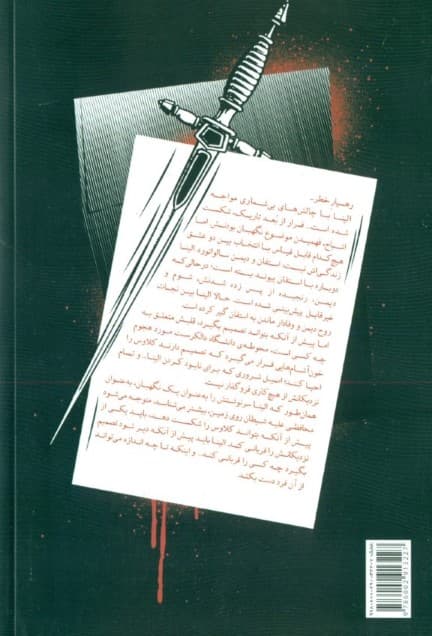 رهسپار خطر...
الینا با چالش‌های بی‌شماری مواجه
شده است. فرار از بُعد تاریک، شکست
اتاج، فهمیدن موضوع نگهبان بودنش اما
هیچ‌کدام قابل قیاس با انتخاب بین دو عشق
زندگی‌اش نیست، استفان و دیمن سالواتوره. الینا
دوباره با استفان پیوند بسته است؛ درحالی‌که
دیمن، رنجیده از پس زده شدنش، شوم و
غیرقابل پیش‌بینی شده است. حالا الینا بین نجات
روح دیمن و وفادار ماندن به استفان گیر کرده است.
اما پیش از آنکه بتواند تصمیم بگیرد، قلبش متعلق به
چه کسی است، محوطه‌ی دانشگاه دالکرست مورد هجوم
خون‌آشام‌هایی قرار می‌گیرد که تصمیم دارند کلاوس را
احیا کنند؛ اصیل شروری که برای نابود کردن الینا، و تمام
نزدیکانش از هیچ کاری فروگذار نیست.
همان‌طور که الینا سرنوشتش را به‌عنوان یک نگهبان، به‌عنوان
محافظی علیه شیطان روی زمین، بیشتر می‌شناسد، متوجه می‌شود
پیش از آنکه بتواند کلاوس را شکست دهد، باید یکی از
نزدیکانش را قربانی کند. الینا باید پیش از آنکه دیر شود تصمیم
بگیرد چه کسی را قربانی کند... و اینکه تا چه اندازه می‌تواند
از آن فرد دست بکشد.